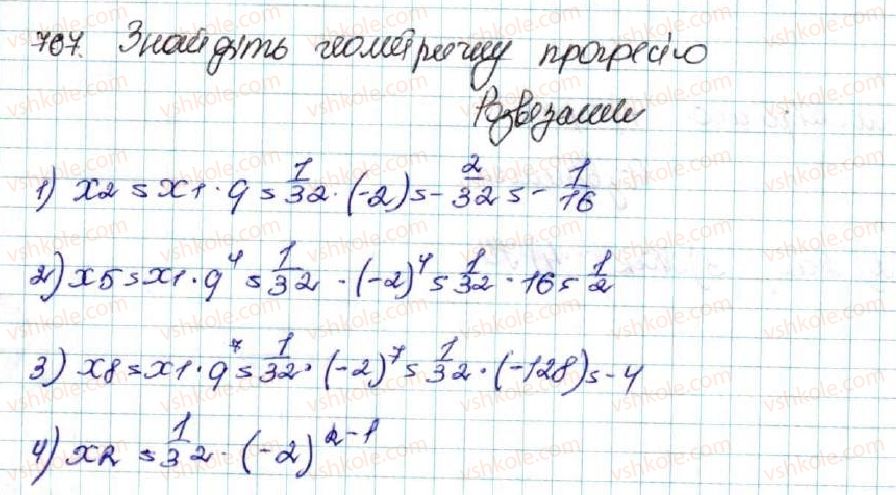 767. Знайдіть геометричну прогресію
Розвязання
1) x2 = x1 · q = 1/32 · (-2) = - 2/32 = - 1/16
2) x5 = x1 · q^4 = 1/32 · (-2)^4 = 1/32 · 16 = 1/2
3) x8 = x1 · q^7 = 1/32 · (-2)^7 = 1/32 · (-128) = -4
4) x2 = 1/32 · (-2)^2-1